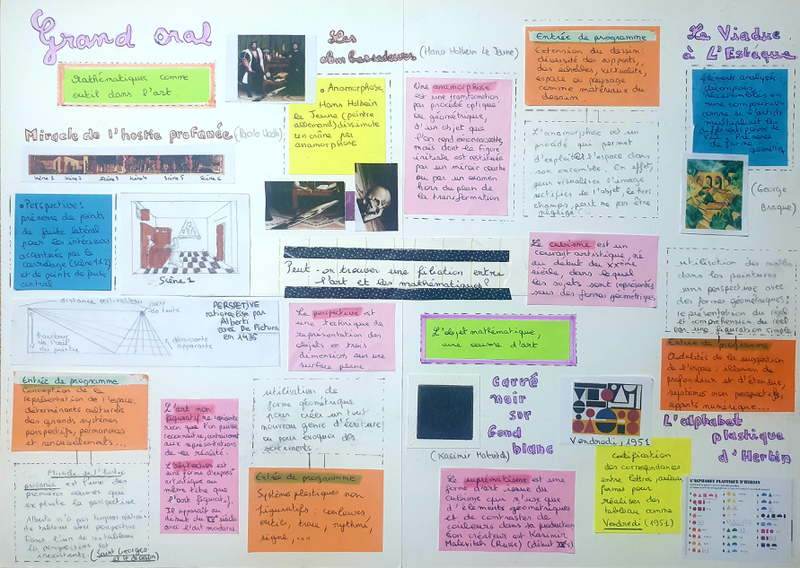 Grand oral
Mathématiques comme
outil dans l'art
Miracle de l'hostie profanée (Paolo Uccello)
Scène 1 Scène 2 Scène 3 Scène 4 Scène 5 Scène 6
• Perspective:
présence de points
de fuite latéral
pour les intérieurs
accentués par le
carrelage (scène 1 et 2)
et de points de fuite
central
Scène 1
distance
point
de fuite
hauteur
de l'œil
du peintre
apparente
PERSPETIVE
par
Alberti
avec De Pictura
en 1435
Entrée de programme
Conception de la
représentation de l'espace:
déterminants culturels
des grands systèmes
perspectifs, permanences
et renouvellements...
Miracle de l'hostie
profanée est l'une des
premières œuvres qui
exploite la perspective
Alberti n'a pas toujours réalisé
de tableau avec perspective
Dans l'un de ses tableaux
la perspective est
inexistante (Saint Georges
et le dragon)
Les
Ambassadeurs (Hans Holbein Le Jeune)
• Anamorphose,
Hans Holbein
le Jeune (peintre
allemand) dissimule
un crâne par
anamorphose
Une anamorphose
est une transformation
par procédé optique
ou géométrique,
d'un objet que
l'on rend méconnaissable,
mais dont la figure
initiale est restituée
par un miroir courbe
ou par un examen
hors du plan de
la transformation
Entrée de programme
Extension du dessin:
diversité des supports,
des échelles, virtualité,
espace ou paysage
comme matériaux du
dessin
L'anamorphose est un
procédé qui permet
d'exploiter l'espace dans
son ensemble. En effet,
pour visualiser l'image
rectifiée de l'objet, le hors
champs, peut ne pas être
négligé
Le Viaduc
à L'Estaque
(George
Braque)
Peut-on trouver une filiation entre
l'art et les mathématiques?
La perspective est
une technique de
représentation des
objets en trois
dimensions sur une
surface plane
Le cubisme est un
courant artistique, né
au début du XXème
siècle, dans lequel
les objets sont représentés
sous des formes géométriques
utilisation des modèles
dans les peintures
sans perspective avec
des formes géométriques:
représentation du réel
et compréhension du réel
par une figuration simple
Entrée de programme
Modalités de la suggestion
de l'espace: illusion de
profondeur et d'étendue,
systèmes non perspectifs,
apports numérique...
L'objet mathématique,
une œuvre d'art
L'art non
figuratif ne représente
rien que l'on puisse
reconnaître, contrairement
aux représentations
de la réalité.
L'abstraction est
une forme d'expression
artistique au
même titre que
l'art figuratif.
Il apparaît au
début du XXe siècle
avec l'art moderne.
utilisation de
forme géométrique
pour créer un tout
nouveau genre d'écriture
ou pour évoquer des
sentiments
Entrée de programme
Systèmes plastiques non
figuratifs: couleurs
outils, trace, rythme,
signe,...
Carré
noir
sur
fond
blanc
(Kasimir Malevitch)
Le suprématisme est une
forme d'art issue du
cubisme qui n'use que
d'éléments géométriques
et de contrastes de
couleurs dans sa production
Son créateur est Kasimir
Malevitch (Russe) (début XXe)
Vendredi, 1951
Codification
des correspondances
entre lettre, couleur,
formes pour
réaliser des
tableau comme
Vendredi (1951)
L'alphabet
plastique
d'Herbin
L'ALPHABET PLASTIQUE D'HERBIN